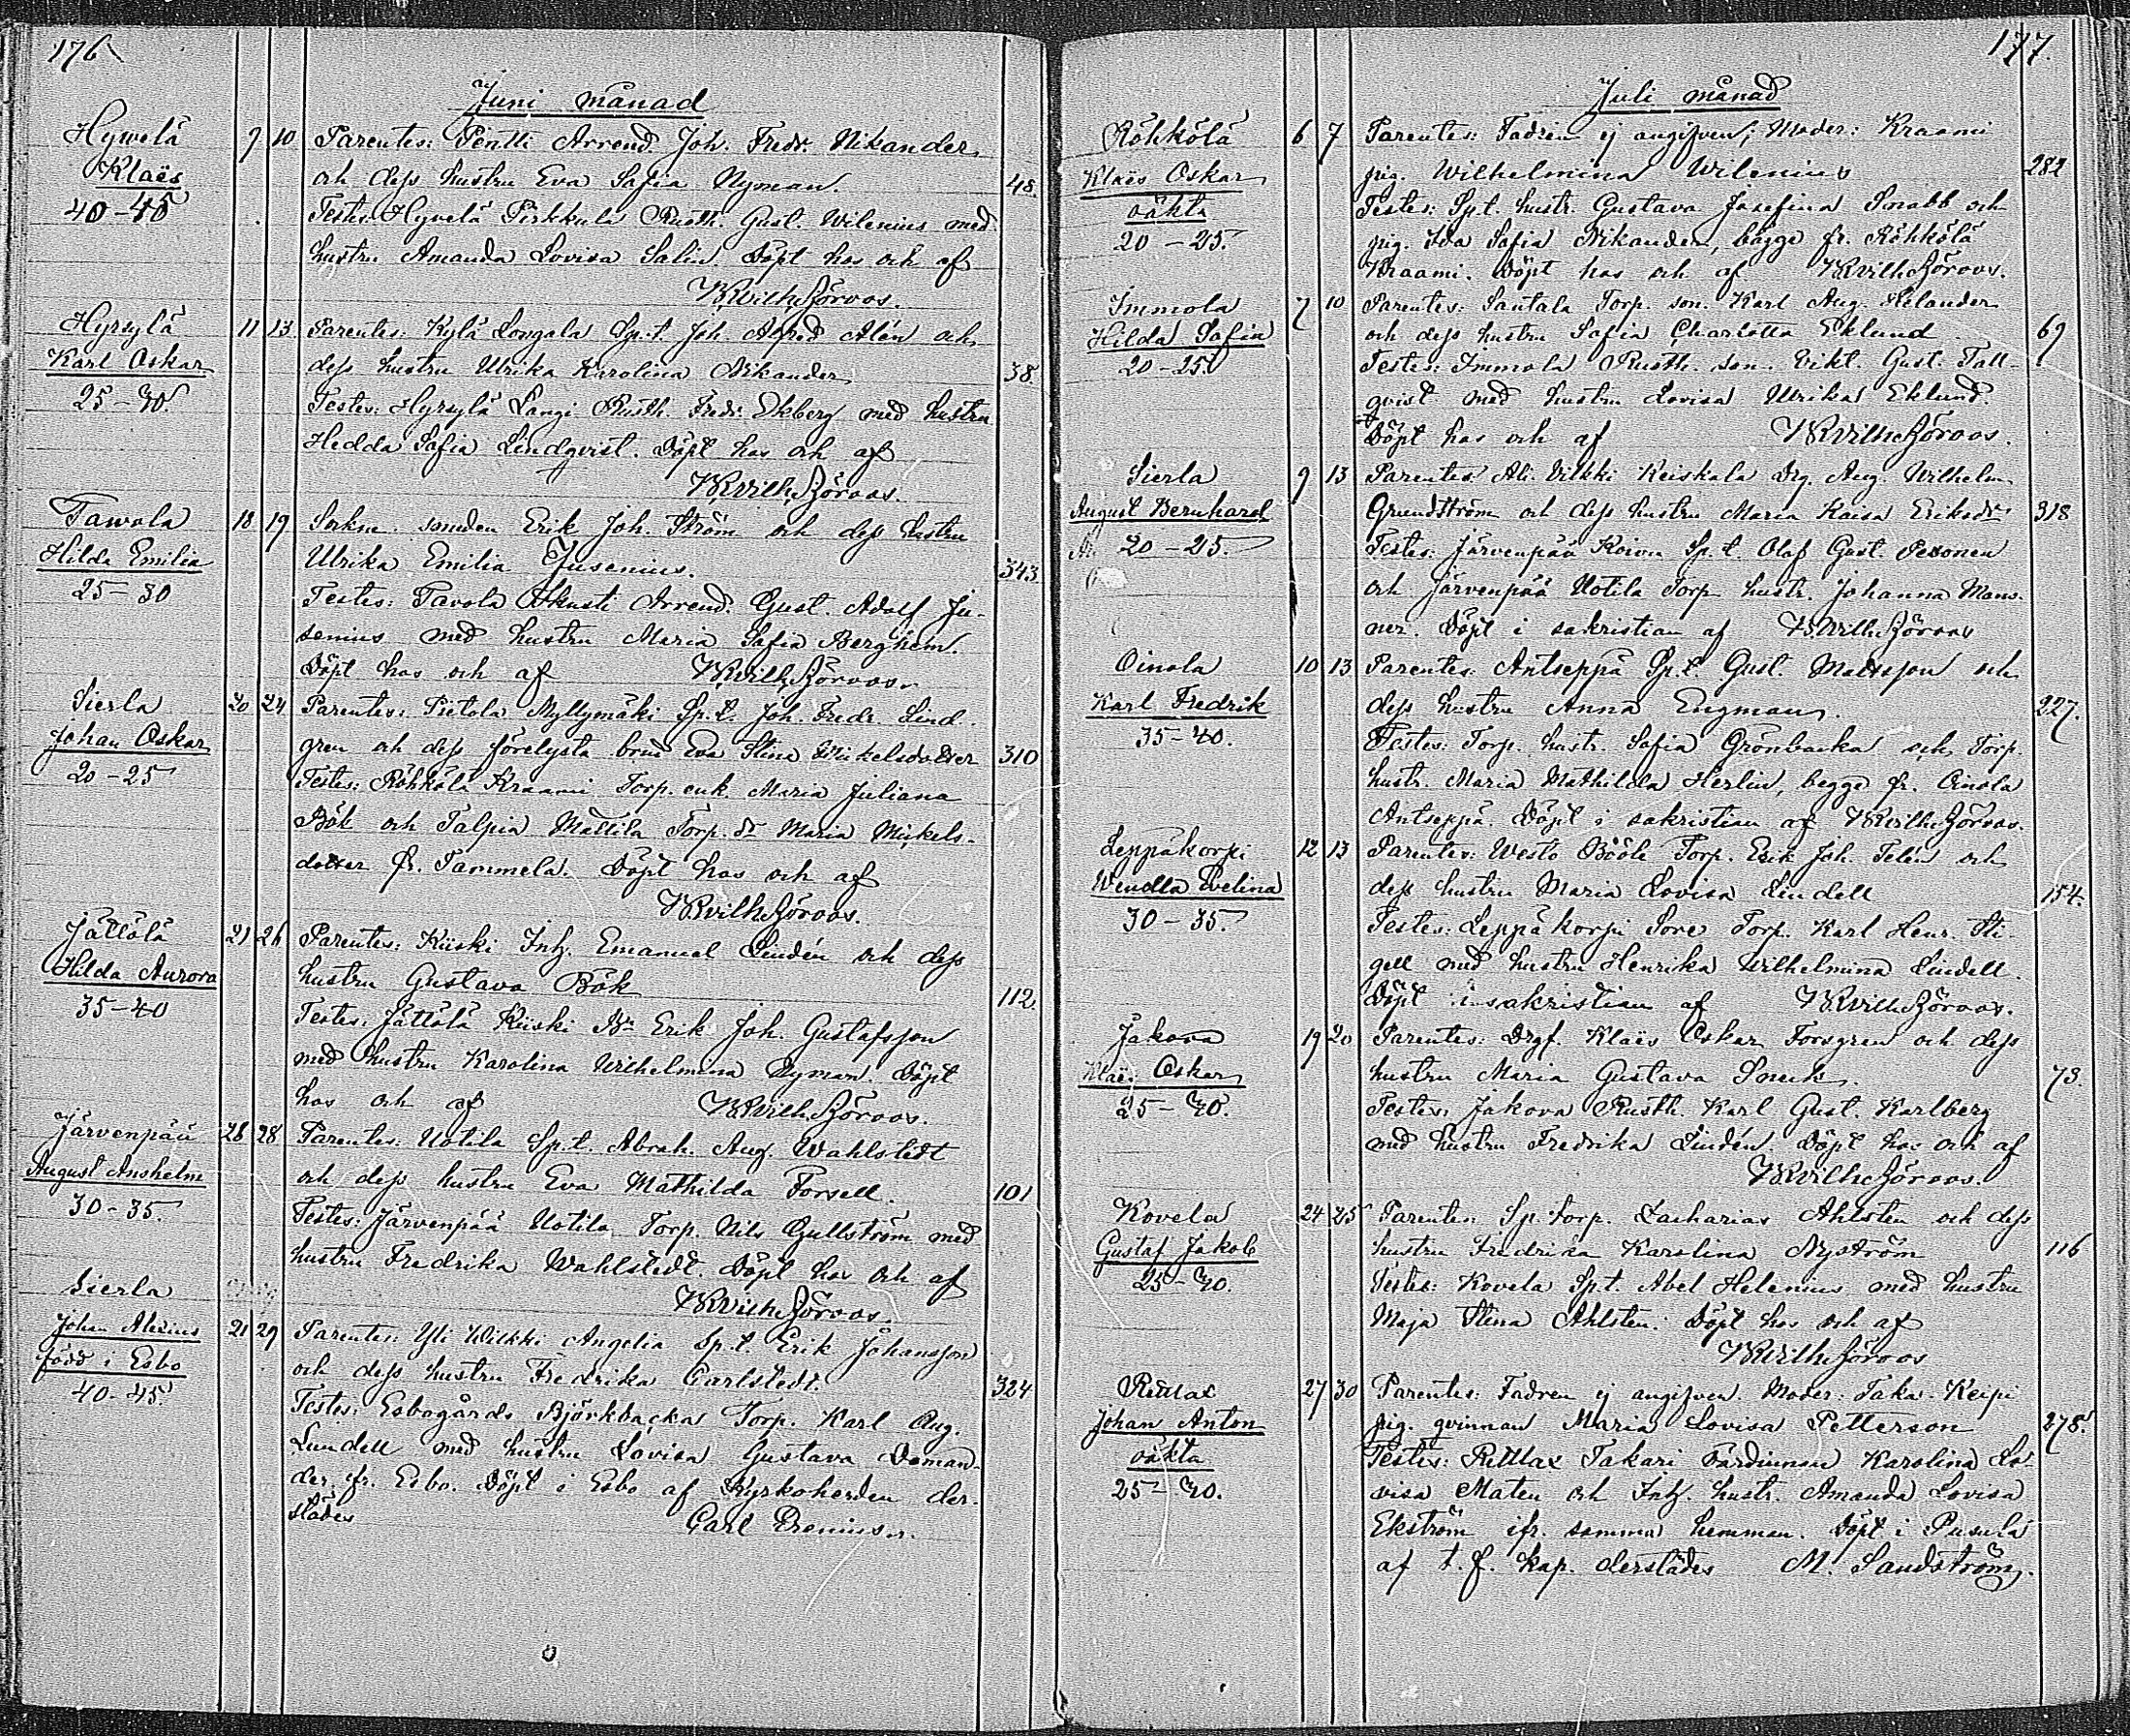 176
Juni månad
Hywelä 9 10 Parentes: Pentti Arrend. Joh. Fredr. Nikander
Klaës och dess hustru Eva Safia Nyman. 48.
40-45 Testes: Hyvelä Pirkkula Rusth. Gust. Wilenius med
hustru Amanda Lovisa Salin. Döpt has och af
KWilh. Söroos.
Hyrsylä 11 13. Parentes: Kylä Longala Sp.t. Joh. Alfred Alén och
Karl Oskar dess hustru Ulrika Karolina Nikander 38.
25-30. Testes: Hyrsylä Langi Rusth. Fredr. Ekberg med hustru
Hedda Safia Lindqvist. Döpt has och af
KWilh. Söroos.
Tawola 18 19 Sockn. smeden Erik Joh. Ström och dess hustru
Hilda Emilia Ulrika Emilia Jusenius. 343.
25-30 Testes: Tavola Skusti Arrend. Gust. Adolf Ju-
senius med hustru Maria Safia Berghem.
Döpt has och af KWilh. Söroos.
Sierla 20 24 Parentes: Pietola Myllymäki Sp.t. Joh. Fredr. Lind
Johan Oskar gren och dess förelysta brud Eva Stina Mickelsdotter 310
20-25 Testes: Röhkölä Kraami Torp. enk. Maria Juliana
Bök och Talpia Mattila Torp. dr Maria Mickels-
dotter fr. Tammela. Döpt has och af
KWilh. Söroos.
Jättölä 21 26 Parentes: Kiiski Inh. Emanuel Lindén och dess
Hilda Aurora hustru Gustava Bök 112.
35-40 Testes: Jättölä Kiiski Bn Erik Joh. Gustafsson
med hustru Karolina Wilhelmina Nyman. Döpt
has och af KWilh. Söroos.
Järvenpää 28 28 Parentes: Uotila Sp.t. Abrah. Aug. Wahlstedt
August Anshelm och dess hustru Eva Mathilda Forsell. 101
30-35. Testes: Järvenpää Uotila Torp. Nils Gullström med
hustru Fredrika Wahlstedt. Döpt has och af
KWilh. Söroos.
Sierla
Johan Alexius 21 29 Parentes: Yli Wilkki Angelia Sp.t. Erik Johansson
född i Esbo och dess hustru Fredrika Carlstedt. 324
40-45. Testes: Esbogårds Björkbacka Torp. Karl Aug.
Lundell med hustru Lovisa Gustava Deman-
der fr. Esbo. Döpt i Esbo af Kyrkoherden der-
städes Carl Prenius.
177.
Juli månad
Röhkölä 6 7 Parentes: Fadren ej angifven; Moder: Kraami
Klaës Oskar pig. Wilhelmina Wilenius 282
oäkta Testes: Sp.t. hustr. Gustava Josefina Snabb och
20-25. pig. Ida Safia Nikander, bägge fr. Röhkölä
Kraami. Döpt has och af KWilh. Söroos.
Immola 7 10 Parentes: Santala Torp. son. Karl Aug. Helander
Hilda Safia och dess hustru Safia Charlotta Eklund 69
20-25. Testes: Immola Rusth. son. Vikt. Gust. Tall-
qvist med hustru Lovisa Ulrika Eklund.
Döpt has och af KWilh. Söroos.
Sierla 9 13 Parentes: Ali. Vilkki Keiskala Drg. Aug. Wilhelm
August Bernhard Grundström och dess hustru Maria Kaisa Eriksdr 318
20-25. Testes: Järvenpää Koivu Sp.t. Olaf Gust. Pesonen
och Järvenpää Uotila Torp. hustr. Johanna Mans-
ner. Döpt i sakristian af KWilh. Söroos
Oinola 10 13 Parentes: Antseppä Sp.t. Gust. Mattsson och
Karl Fredrik dess hustru Anna Engman. 227.
35-40. Testes: Torp. hustr. Safia Grönbacka och Torp.
hustr. Maria Mathilda Herlin, begge fr. Oinola
Antseppä. Döpt i sakristian af KWilh. Söroos.
Leppäkorpi 12 13 Parentes: Westo Bööle Torp. Erik Joh. Telén och
Wendla Evelina dess hustru Maria Lovisa Lindell 154.
30-35. Testes: Leppäkorpi Sore Torp. Karl Henr. Sti-
gell med hustru Henrika Wilhelmina Lindell.
Döpt i sakristian af KWilh. Söroos.
Jakova 19 20 Parentes: Drgf. Klaës Oskar Forsgren och dess
Klaës Oskar hustru Maria Gustava Snuk. 73.
25-30. Testes: Jakova Rusth. Karl Gust. Karlberg
med hustru Fredrika Lindén. Döpt has och af
KWilh. Söroos.
Kovela 24 25 Parentes: Sp. torp. Zacharias Ahlsten och dess
Gustaf Jakob hustru Fredrika Karolina Nyström 116
25-30. Testes: Kovela Sp.t. Abel Helenius med hustru
Maja Stina Ahlsten. Döpt has och af
KWilh. Söroos
Retlax 27 30 Parentes: Fadren ej angifven. Moder: Taka-Keipi
Johan Anton pig. qvinnan Maria Lovisa Petterson 278.
oäkta Testes: Retlax Takari Färdinnan Karolina Lo-
25-30. visa Maten och Inh. hustr. Amanda Lovisa
Ekström ifr. samma hemman. Döpt i Pusula
af t.f. kap. derstädes M. Sandström.